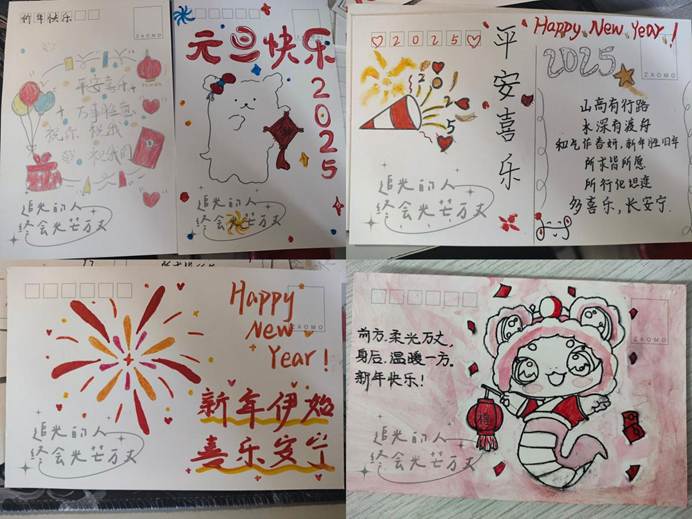 新年快乐
ZAOMO
平安喜乐
万事胜意
祝你
祝我
祝我们
追光的人
终会光芒万丈
元旦快乐
2025
追光的人
终会光芒万丈
2025
平安喜乐
2025
追光的人
终会光芒万丈
Happy New Year!
2025
ZAOMO
山高有行路
水深有渡舟
和气作春妍，新年胜旧年
所求皆所愿
所行化坦途
多喜乐，长安宁.
Happy
New
Year!
ZAOMO
新年伊始
喜乐安宁
追光的人
终会光芒万丈
前方.柔光万丈，
身后.温暖一方。
新年快乐！
ZAOMO
追光的人
终会光芒万丈